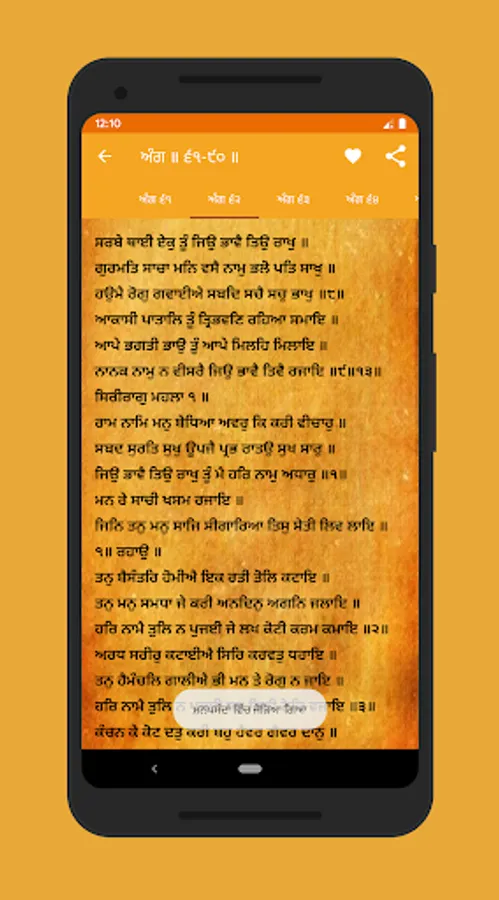 12:10
ਅੰਗ ॥ ੬੧-੯੦ ॥
ਅੰਗ ੬੧ ਅੰਗ ੬੨ ਅੰਗ ੬੩ ਅੰਗ ੬੪
ਸਰਬੇ ਥਾਈ ਏਕੁ ਤੂੰ ਜਿਉ ਭਾਵੈ ਤਿਉ ਰਾਖੁ ॥
ਗੁਰਮਤਿ ਸਾਚਾ ਮਨਿ ਵਸੈ ਨਾਮੁ ਭਲੋ ਪਤਿ ਸਾਖੁ ॥
ਹਉਮੈ ਰੋਗੁ ਗਵਾਈਐ ਸਬਦਿ ਸਚੈ ਸਚੁ ਭਾਖੁ ॥੮॥
ਆਕਾਸੀ ਪਾਤਾਲਿ ਤੂੰ ਤ੍ਰਿਭਵਣਿ ਰਹਿਆ ਸਮਾਇ ॥
ਆਪੇ ਭਗਤੀ ਭਾਉ ਤੂੰ ਆਪੇ ਮਿਲਹਿ ਮਿਲਾਇ ॥
ਨਾਨਕ ਨਾਮੁ ਨ ਵੀਸਰੈ ਜਿਉ ਭਾਵੈ ਤਿਵੈ ਰਜਾਇ ॥੯॥੧੩॥
ਸਿਰੀਰਾਗੁ ਮਹਲਾ ੧ ॥
ਰਾਮ ਨਾਮਿ ਮਨੁ ਬੇਧਿਆ ਅਵਰੁ ਕਿ ਕਰੀ ਵੀਚਾਰੁ ॥
ਸਬਦ ਸੁਰਤਿ ਸੁਖੁ ਊਪਜੈ ਪ੍ਰਭ ਰਾਤਉ ਸੁਖ ਸਾਰੁ ॥
ਜਿਉ ਭਾਵੈ ਤਿਉ ਰਾਖੁ ਤੂੰ ਮੈ ਹਰਿ ਨਾਮੁ ਅਧਾਰੁ ॥੧॥
ਮਨ ਰੇ ਸਾਚੀ ਖਸਮ ਰਜਾਇ ॥
ਜਿਨਿ ਤਨੁ ਮਨੁ ਸਾਜਿ ਸੀਗਾਰਿਆ ਤਿਸੁ ਸੇਤੀ ਲਿਵ ਲਾਇ ॥
੧॥ ਰਹਾਉ ॥
ਤਨੁ ਬੈਸੰਤਰਿ ਹੋਮੀਐ ਇਕ ਰਤੀ ਤੋਲਿ ਕਟਾਇ ॥
ਤਨੁ ਮਨੁ ਸਮਧਾ ਜੇ ਕਰੀ ਅਨਦਿਨੁ ਅਗਨਿ ਜਲਾਇ ॥
ਹਰਿ ਨਾਮੈ ਤੁਲਿ ਨ ਪੁਜਈ ਜੇ ਲਖ ਕੋਟੀ ਕਰਮ ਕਮਾਇ ॥੨॥
ਅਰਧ ਸਰੀਰੁ ਕਟਾਈਐ ਸਿਰਿ ਕਰਵਤੁ ਧਰਾਇ ॥
ਤਨੁ ਹੈਮੰਚਲਿ ਗਾਲੀਐ ਭੀ ਮਨ ਤੇ ਰੋਗੁ ਨ ਜਾਇ ॥
ਹਰਿ ਨਾਮੈ ਤੁਲਿ ਨ ॥੩॥
ਮਨਪਸੰਦਾਂ ਵਿੱਚ ਜੋੜਿਆ ਗਿਆ
ਕੰਚਨ ਕੇ ਕੋਟ ਦਤੁ ਕਰੀ ਬਹੁ ਹੈਵਰ ਗੈਵਰ ਦਾਨੁ ॥